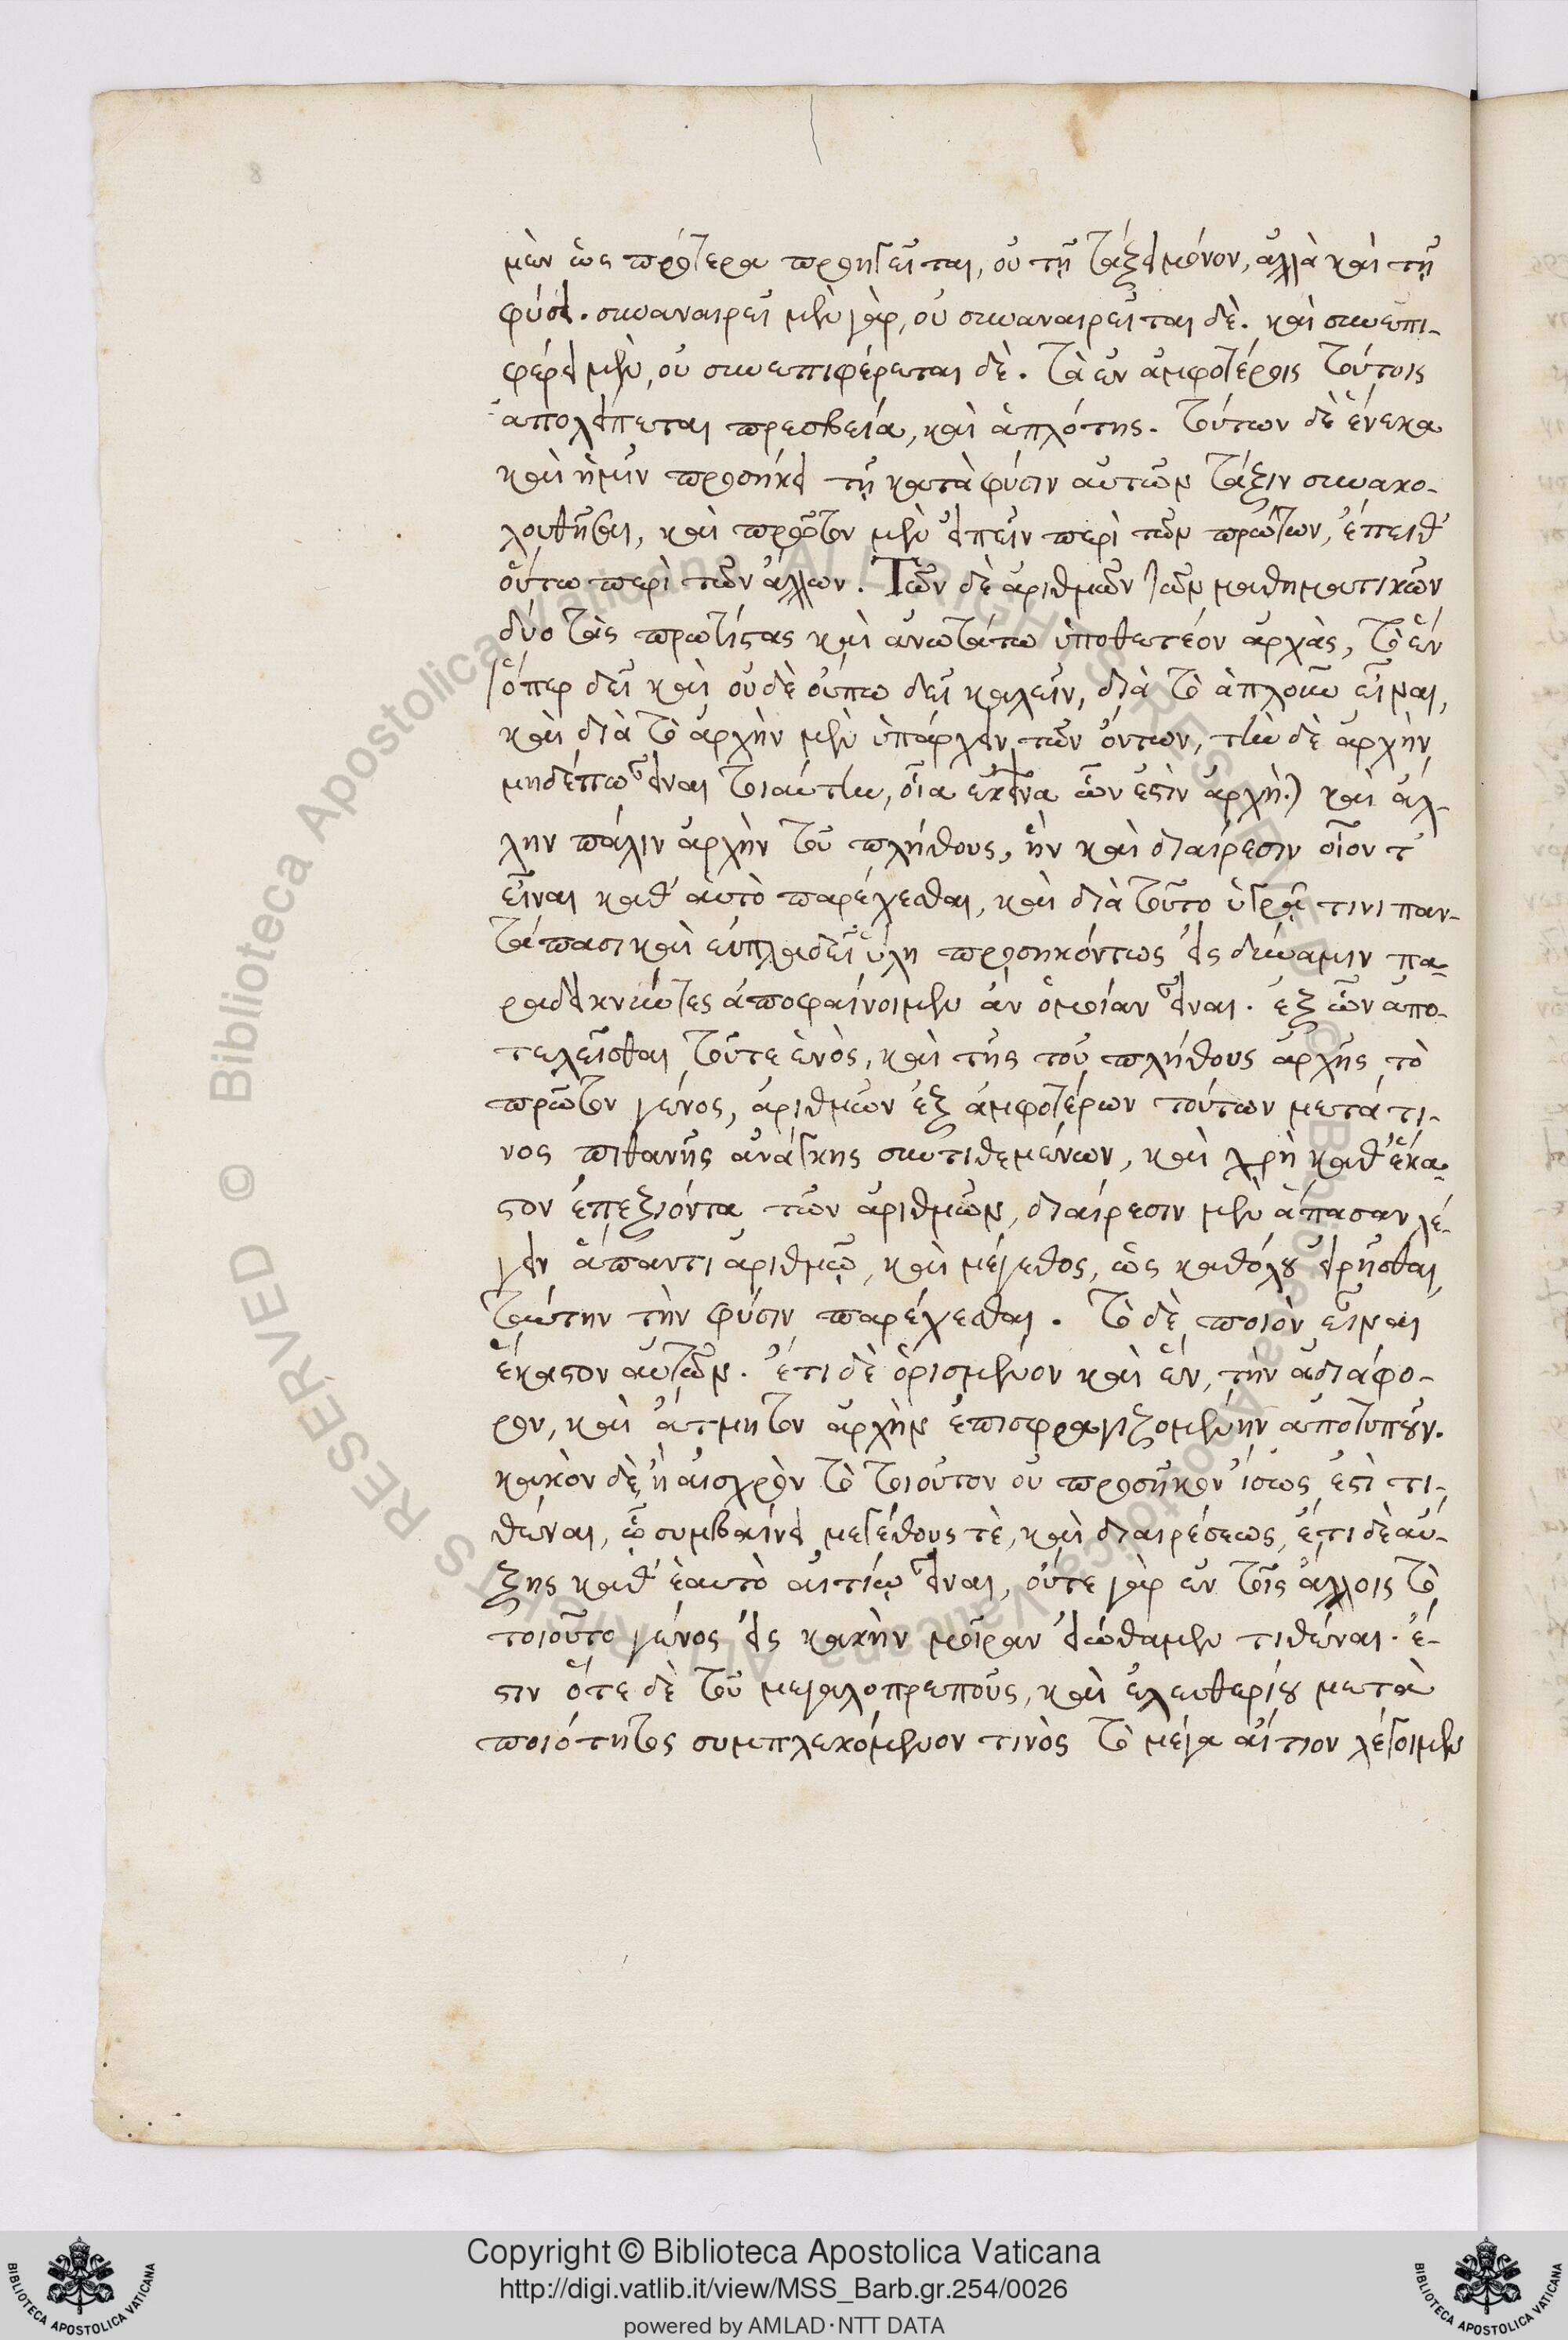 μὲν ὡς πρότερα προηγεῖται, οὐ τῇ τάξει μόνον, ἀλλὰ καὶ τῇ
φύσει. συναναιρεῖ μὲν γὰρ, οὐ συναναιρεῖται δὲ. καὶ συνεπι-
φέρει μὲν, οὐ συνεπιφέρεται δὲ. τὰ ἐν ἀμφοτέροις τούτοις
ἀπολείπεται πρεσβεία, καὶ ἁπλότης. τούτων δὲ ἕνεκα
καὶ ἡμῖν προσήκει τῇ κατὰ φύσιν αὐτῶν τάξιν συνακο-
λουθῆσαι, καὶ πρῶτον μὲν εἰπεῖν περὶ τῶν πρώτων, ἔπειθ'
οὕτω περὶ τῶν ἄλλων. Τῶν δὲ ἀριθμῶν τῶν μαθηματικῶν
δύο τὰς πρωτίστας καὶ ἀνωτάτω ὑποθετέον ἀρχὰς, τὸ ἓν
(ὅπερ δεῖ καὶ οὐδὲ οὔπω δεῖ καλεῖν, διὰ τὸ ἁπλοῦν εἶναι,
καὶ διὰ τὸ ἀρχὴν μὲν ὑπάρχειν τῶν ὄντων, τὴν δὲ ἀρχὴν
μηδέπω εἶναι τοιαύτην, οἷα ἐκεῖνα ὧν ἐστὶν ἀρχὴ.) καὶ ἄλ-
λην πάλιν ἀρχὴν τοῦ πλήθους, ἣν καὶ διαίρεσιν οἷον τ'
εἶναι καθ' αὑτὸ παρέχεσθαι, καὶ διὰ τοῦτο ὑγρᾷ τινι παν-
τάπασι καὶ εὐπλαδεῖ ὕλῃ προσηκόντως εἰς δύναμιν πα-
ραδεικνύντες ἀποφαίνοιμεν ἂν ὁμοίαν εἶναι. ἐξ ὧν ἀπο-
τελεῖσθαι τοῦτε ἑνὸς, καὶ τῆς τοῦ πλήθους ἀρχῆς τὸ
πρῶτον γένος, ἀριθμῶν ἐξ ἀμφοτέρων τούτων μετά τι-
νος πιθανῆς ἀνάγκης συντιθεμένων, καὶ χρὴ καθ' ἕκα-
στον ἐπεξιόντα τῶν ἀριθμῶν, διαίρεσιν μὲν ἅπασαν λέ-
γειν ἅπαντι ἀριθμῷ, καὶ μέγεθος, ὡς καθόλου εἰρῆσθαι,
ταύτην τὴν φύσιν παρέχεσθαι. Τὸ δὲ ποιὸν εἶναι
ἕκαστον αὐτῶν. ἔτι δὲ ὁρισμένον καὶ ἓν, τὴν ἀδιάφο-
ρον, καὶ ἄτμητον ἀρχὴν ἐπισφραγιζομένην ἀποτυποῦν.
κακὸν δὲ ἢ αἰσχρὸν τὸ τοιοῦτον οὐ προσῆκον ἴσως ἐστὶ τι-
θέναι, ᾧ συμβαίνει μεγέθους τὲ, καὶ διαιρέσεως, ἔτι δὲ αὔ-
ξης καθ' ἑαυτὸ αἰτίῳ εἶναι, οὔτε γὰρ ἐν τοῖς ἄλλοις τὸ
τοιοῦτο γένος εἰς κακὴν μοῖραν εἰώθαμεν τιθέναι. ἔ-
στιν ὅτε δὲ τοῦ μεγαλοπρεποῦς, καὶ ἐλευθερίου μετὰ
ποιότητος συμπλεκόμενον τινὸς τὸ μέγα αἴτιον λέγοιμεν
8
© Biblioteca Apostolica Vaticana ALL RIGHTS RESERVED
Copyright © Biblioteca Apostolica Vaticana
http://digi.vatlib.it/view/MSS_Barb.gr.254/0026
powered by AMLAD·NTT DATA
BIBLIOTECA APOSTOLICA VATICANA
BIBLIOTECA APOSTOLICA VATICANA